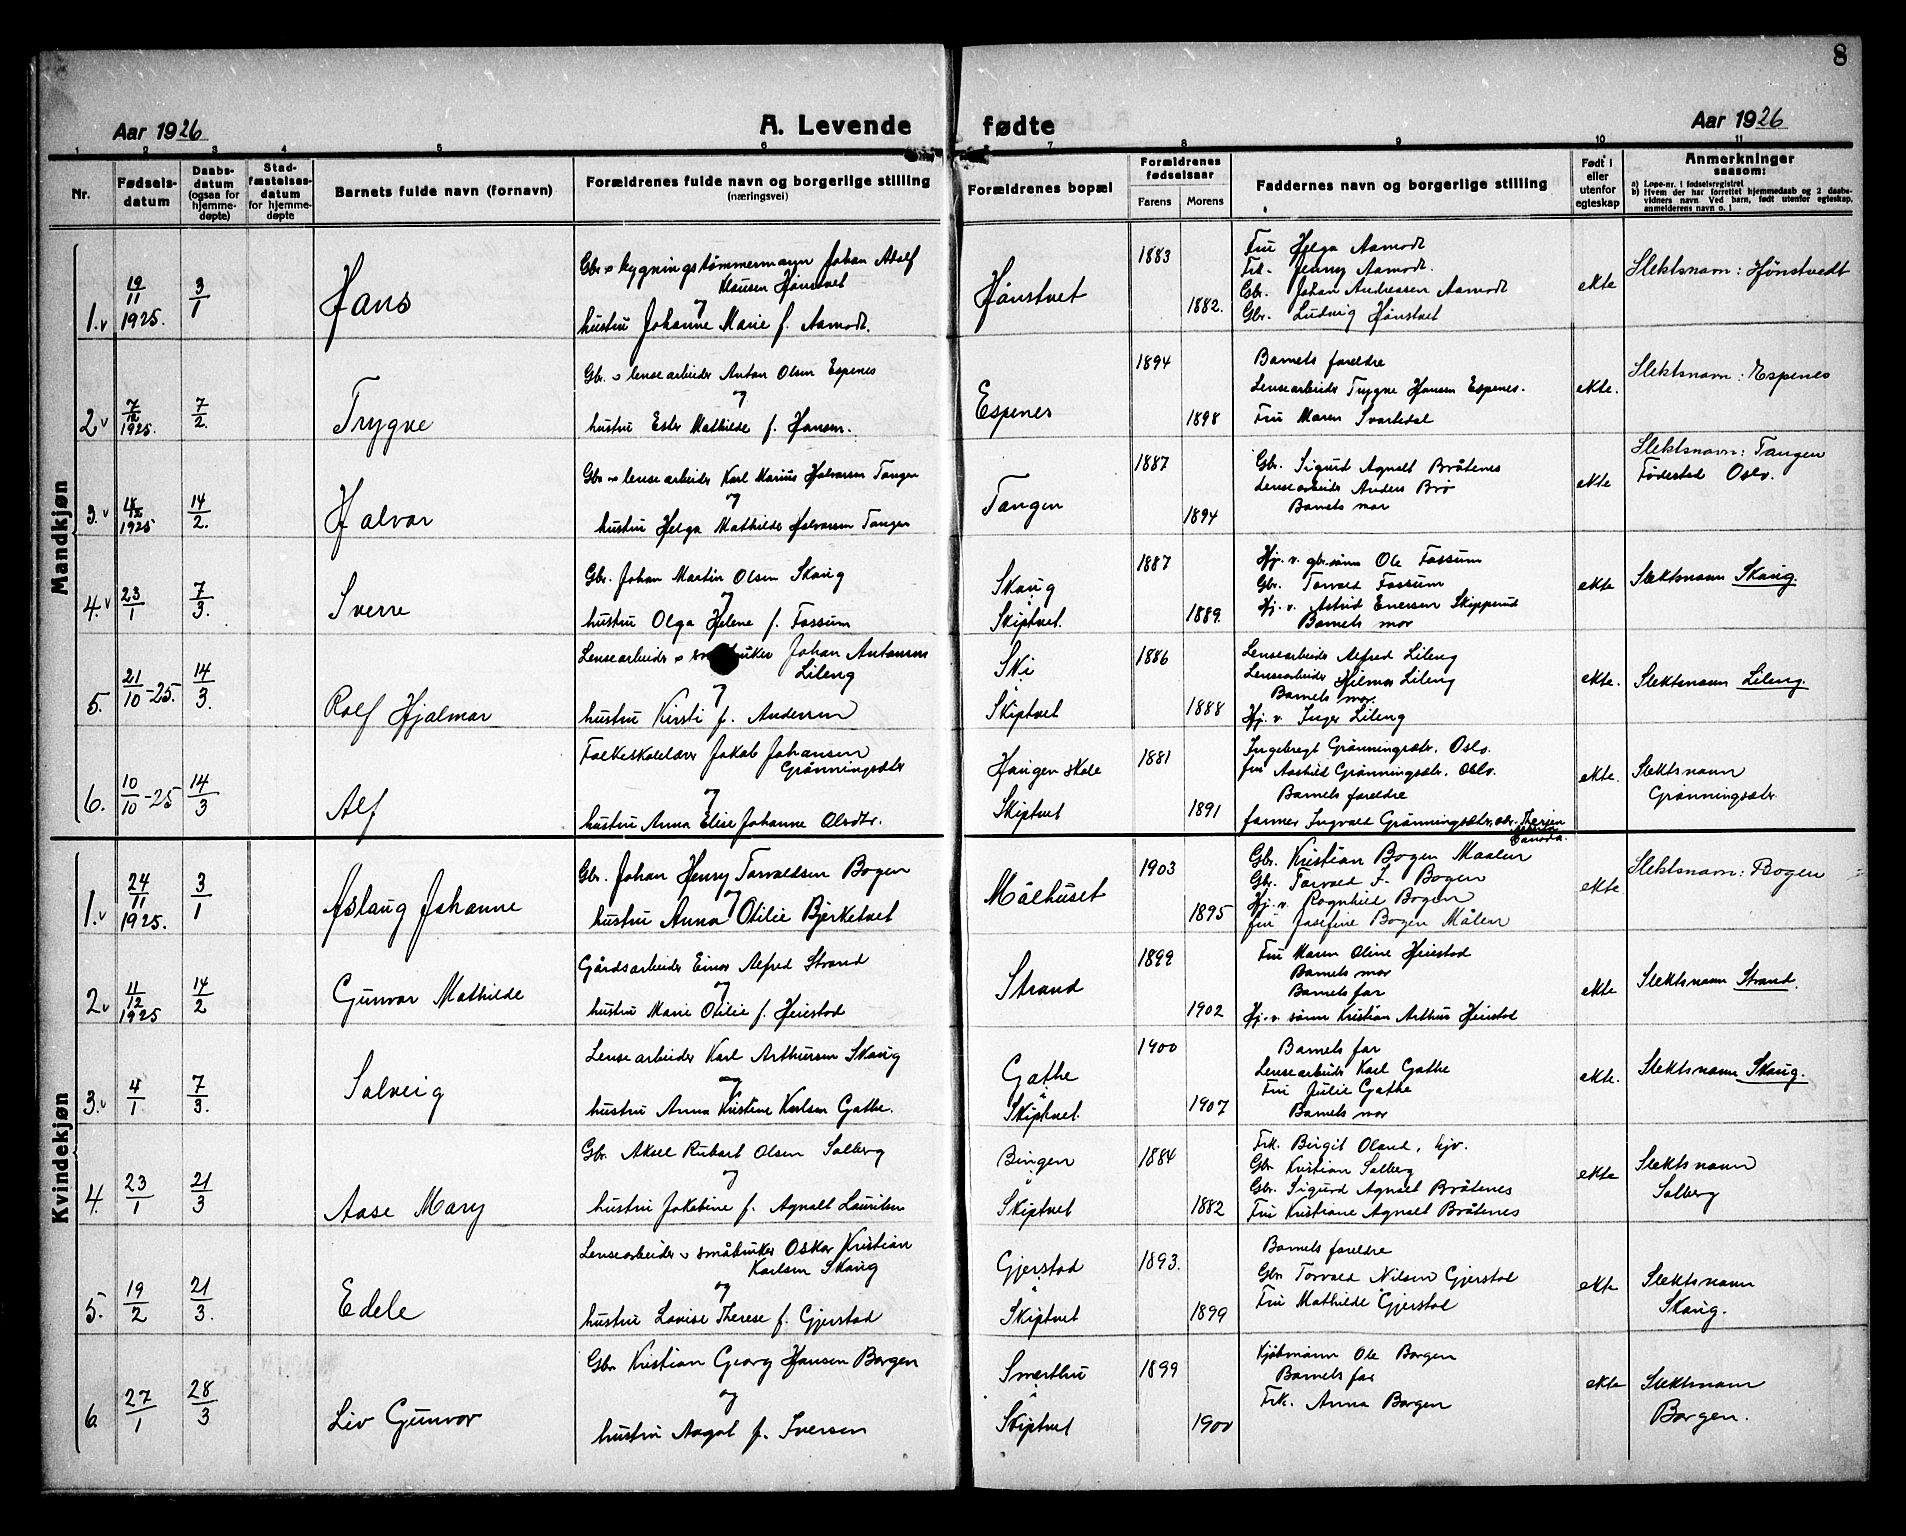 8
Aar 1926
A. Levende fødte
Aar 1926
1 2 3 4 5 6 7 8 9 10 11
Nr.
Fødsels-
datum
Daabs-
datum
(ogsaa for
hjemme-
døpte)
Stad-
fæstelses-
datum
for hjemme-
døpte
Barnets fulde navn (fornavn)
Forældrenes fulde navn og borgerlige stilling
(næringsvei)
Forældrenes bopæl
Forældrenes
fødselsaar
Farens Morens
Faddernes navn og borgerlige stilling
Født i
eller
utenfor
egteskap
Anmerkninger
saasom:
a) Løpe-nr. i fødselsregistret
b) Hvem der har forrettet hjemmedaab og 2 daabs-
vidners navn. Ved barn, født utenfor egteskap,
anmelderens navn o. l
Mandkjøn
1.v
19/11 1925.
3/1
Hans
Gbr. & bygningstømmermann Johan Adolf
Klausen Hønstvet
og
hustru Johanne Marie f. Aamodt.
Hønstvet
1883
1882.
Fru Helga Aamodt
Frk. Jenny Aamodt.
Gbr. Johan Andreassen Aamodt
Gbr. Ludvig Hønstvet
ekte
Slektsnavn: Hønstvedt
2v
7/12 1925.
7/2.
Trygve
Gbr. & lensearbeider Anton Olsen Espenes
og
hustru Ester Mathilde f. Hansen.
Espenes
1894
1898
Barnets foreldre
Lensearbeider Trygve Hansen Espenes.
Fru Maren Svartedal
ekte.
Slektsnavn: Espenes
3.v
1925
14/2.
Halvor
Gbr. & lensearbeider Karl Marius Halvorsen Tangen
og
hustru Helga Mathilde Halvorsen Tangen
Tangen
1887
1894
Gbr. Sigurd Agnalt Bråtenes
Lensearbeider Anders Brø
Barnets mor
ekte
Slektsnavn: Tangen
Fødested Oslo.
4.v
23/1
7/3.
Sverre
Gbr. Johan Martin Olsen Skaug
og
hustru Olga Helene f. Fossum
Skaug
Skiptvet.
1887
1889.
Hj. v. gbr.sønn Ole Fossum
Gbr. Torvald Fossum
Hj. v. Astrid Enersen Skipperud
Barnets mor
ekte
Slektsnavn Skaug.
5.
21/10-25.
14/3.
Rolf Hjalmar
Lensearbeider & småbruker Johan Antonsen
Lileng
og
hustru Kirsti f. Andersen
Ski
Skiptvet
1886
1888
Lensearbeider Alfred Lileng
Lensearbeider Hilmar Lileng
Barnets mor.
Hj. v. Inger Lileng
ekte.
Slektsnavn Lileng.
6.
10/10-25
14/3
Alf
Folkeskolelærer Jakob Johansen
Grønningsæter
og
hustru Anna Elise Johanne Olsdtr.
Haugen skole
Skiptvet
1881
1891
Ingebregt Grønningsæter. Oslo.
fru Aashild Grønningsæter. Oslo.
Barnets foreldre
farmer Ingvald Grønningsæter,
Canada.
ekte.
Slektsnavn
Grønningsæter
Kvindekjøn
1.v
24/11 1925.
3/1
Aslaug Johanne
Gbr. Johan Henry Torvaldsen Bogen
og
hustru Anna Otilie Bjerketvet
Målhuset
1903
1895
Gbr. Kristian Bogen Maalen
Gbr. Torvald J. Bogen
Hj. v. Ragnhild Bogen
fru Josefine Bogen Målen
ekte
Slektsnavn: Bogen
2v
11/12 1925
14/2
Gunvor Mathilde
Gårdsarbeider Einar Alfred Strand
og
hustru Marie Otilie f. Heiestad
Strand
1899
1902
Fru Maren Oline Heiestad
Barnets mor
Barnets far
Hj. v. sønn Kristian Arthur Heiestad
ekte
Slektsnavn Strand.
3.v
4/1
7/3.
Solveig
Lensearbeider Karl Arthursen Skaug
og
hustru Anna Kristine Karlsen Gathe.
Gathe
Skiptvet.
1900
1907
Barnets far
Lensearbeider Karl Gathe
Fru Julie Gathe
Barnets mor
ekte.
Slektsnavn Skaug.
4.
23/1
21/3
Aase Mary
Gbr. Aksel Robert Olsen Solberg
og
hustru Jakobine f. Agnalt Lauritsen
Bingen
Skiptvet
1884
1882
Frk. Birgit Oland, hjv.
Gbr. Kristian Solberg
Gbr. Sigurd Agnalt Bråtenes
Fru Kristiane Agnalt Bråtenes
ekte
Slektsnavn
Solberg
5.
19/2
21/3.
Edele
Lensearbeider & småbruker Oskar Kristian
Karlsen Skaug
og
hustru Lovise Therese f. Gjerstad
Gjerstad
Skiptvet
1893.
1899
Barnets foreldre
Gbr. Torvald Nilsen Gjerstad
Fru Mathilde Gjerstad
ekte
Slektsnavn
Skaug.
6.
27/1
28/3
Liv Gunvor
Gbr. Kristian Georg Hansen Borgen
og
hustru Aagot f. Iversen
Smerthu
Skiptvet
1899
1900
Kjøbmann Ole Borgen
Barnets far
Frk. Anna Borgen
ekte
Slektsnavn
Borgen.